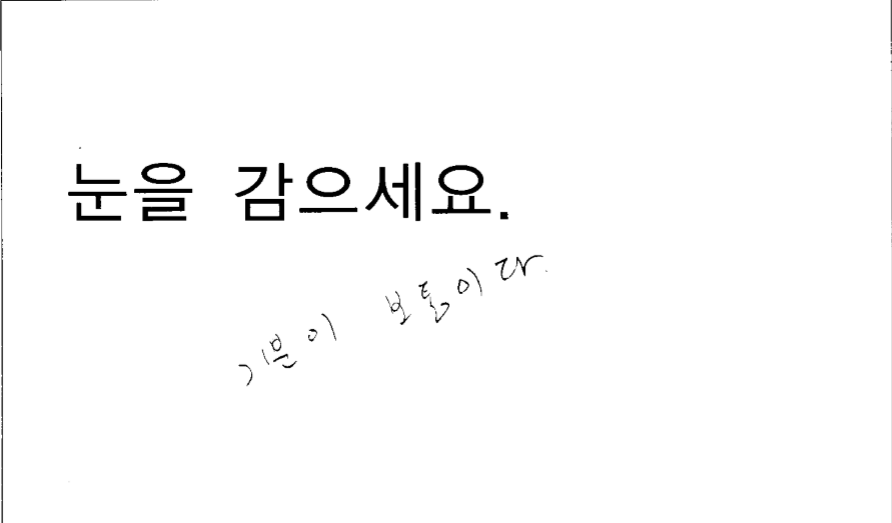 눈을 감으세요.
기분이 보통이다.